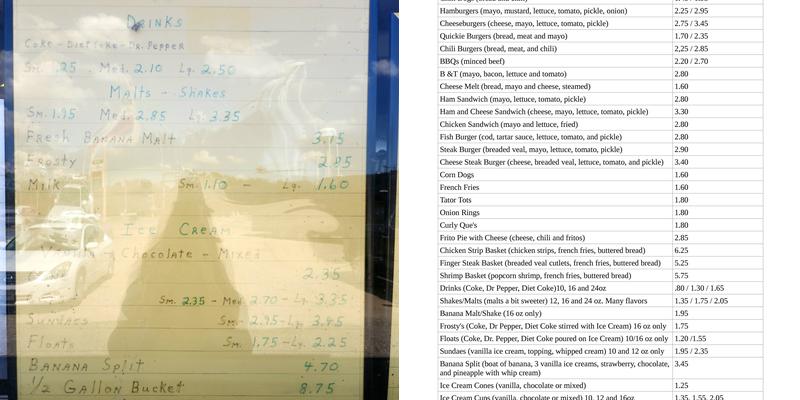 DRINKS
Coke - Diet Coke - Dr. Pepper
Sm. .25 Med. 2.10 Lg. 2.50
Malts - Shakes
Sm. 1.95 Med. 2.85 Lg. 3.35
Fresh Banana Malt 3.15
Frosty 2.85
Milk Sm. 1.10 - Lg. 1.60
Ice Cream
Vanilla - Chocolate - Mixed
2.35
Sm. 2.35 - Med. 2.70 - Lg. 3.35
Sundaes Sm. - 2.95 - Lg. 3.45
Floats Sm. 1.75 - Lg. 2.25
Banana Split 4.70
1/2 Gallon Bucket 8.75
Hamburgers (mayo, mustard, lettuce, tomato, pickle, onion) 2.25 / 2.95
Cheeseburgers (cheese, mayo, lettuce, tomato, pickle) 2.75 / 3.45
Quickie Burgers (bread, meat and mayo) 1.70 / 2.35
Chili Burgers (bread, meat, and chili) 2,25 / 2.85
BBQs (minced beef) 2.20 / 2.70
B &T (mayo, bacon, lettuce and tomato) 2.80
Cheese Melt (bread, mayo and cheese, steamed) 1.60
Ham Sandwich (mayo, lettuce, tomato, pickle) 2.80
Ham and Cheese Sandwich (cheese, mayo, lettuce, tomato, pickle) 3.30
Chicken Sandwich (mayo and lettuce, fried) 2.80
Fish Burger (cod, tartar sauce, lettuce, tomato, and pickle) 2.80
Steak Burger (breaded veal, mayo, lettuce, tomato, pickle) 2.90
Cheese Steak Burger (cheese, breaded veal, lettuce, tomato, and pickle) 3.40
Corn Dogs 1.60
French Fries 1.60
Tator Tots 1.80
Onion Rings 1.80
Curly Que's 1.80
Frito Pie with Cheese (cheese, chili and fritos) 2.85
Chicken Strip Basket (chicken strips, french fries, buttered bread) 6.25
Finger Steak Basket (breaded veal cutlets, french fries, buttered bread) 5.25
Shrimp Basket (popcorn shrimp, french fries, buttered bread) 5.75
Drinks (Coke, Dr Pepper, Diet Coke)10, 16 and 24oz .80 / 1.30 / 1.65
Shakes/Malts (malts a bit sweeter) 12, 16 and 24 oz. Many flavors 1.35 / 1.75 / 2.05
Banana Malt/Shake (16 oz only) 1.95
Frosty's (Coke, Dr Pepper, Diet Coke stirred with Ice Cream) 16 oz only 1.75
Floats (Coke, Dr. Pepper, Diet Coke poured on Ice Cream) 10/16 oz only 1.20 /1.55
Sundaes (vanilla ice cream, topping, whipped cream) 10 and 12 oz only 1.95 / 2.35
Banana Split (boat of banana, 3 vanilla ice creams, strawberry, chocolate, 3.45
and pineapple with whip cream)
Ice Cream Cones (vanilla, chocolate or mixed) 1.25
Ice Cream Cups (vanilla, chocolate or mixed) 10, 12, and 16oz 1.35, 1.55, 2.05